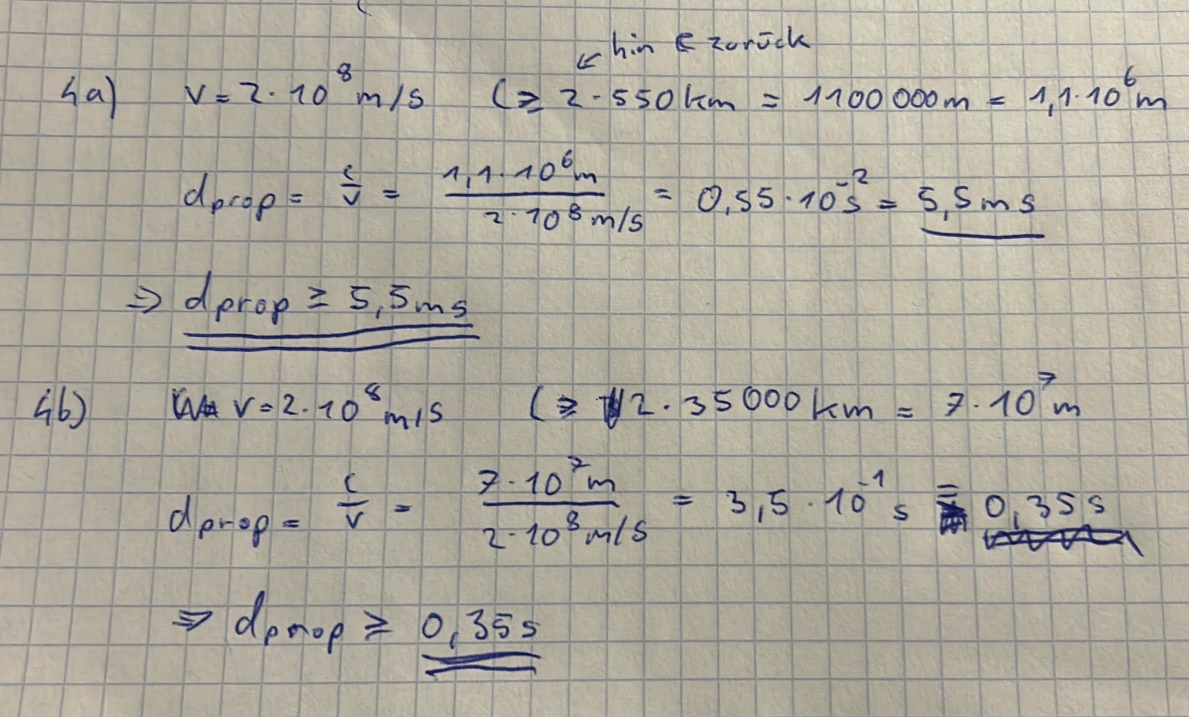 ↙ hin & zurück
4a) v = 2·10⁸ m/s (≥ 2·550 km = 1100 000m = 1,1·10⁶m
dprop = c/v = 1,1·10⁶m / 2·10⁸m/s = 0,55·10⁻²s = 5,5ms
⇒ dprop ≥ 5,5ms
4b) v = 2·10⁸ m/s (≥ 2·35000 km = 7·10⁷m
dprop = c/v = 7·10⁷m / 2·10⁸m/s = 3,5·10⁻¹ s = 0,35s
⇒ dprop ≥ 0,35s